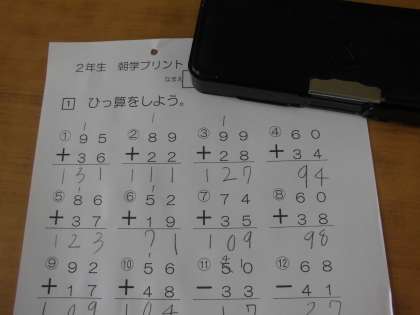 2年生 朝学プリント
なまえ
1 ひっ算をしよう。
1 1 1
① 95 ② 89 ③ 99 ④ 60
+36 +22 +28 +34
131 111 127 94
1 1
⑤ 86 ⑥ 52 ⑦ 74 ⑧ 60
+37 +19 +35 +38
123 71 109 98
1 4 1
⑨ 92 ⑩ 56 ⑪ 50 ⑫ 68
+17 +48 -33 -41
109 104 17 27